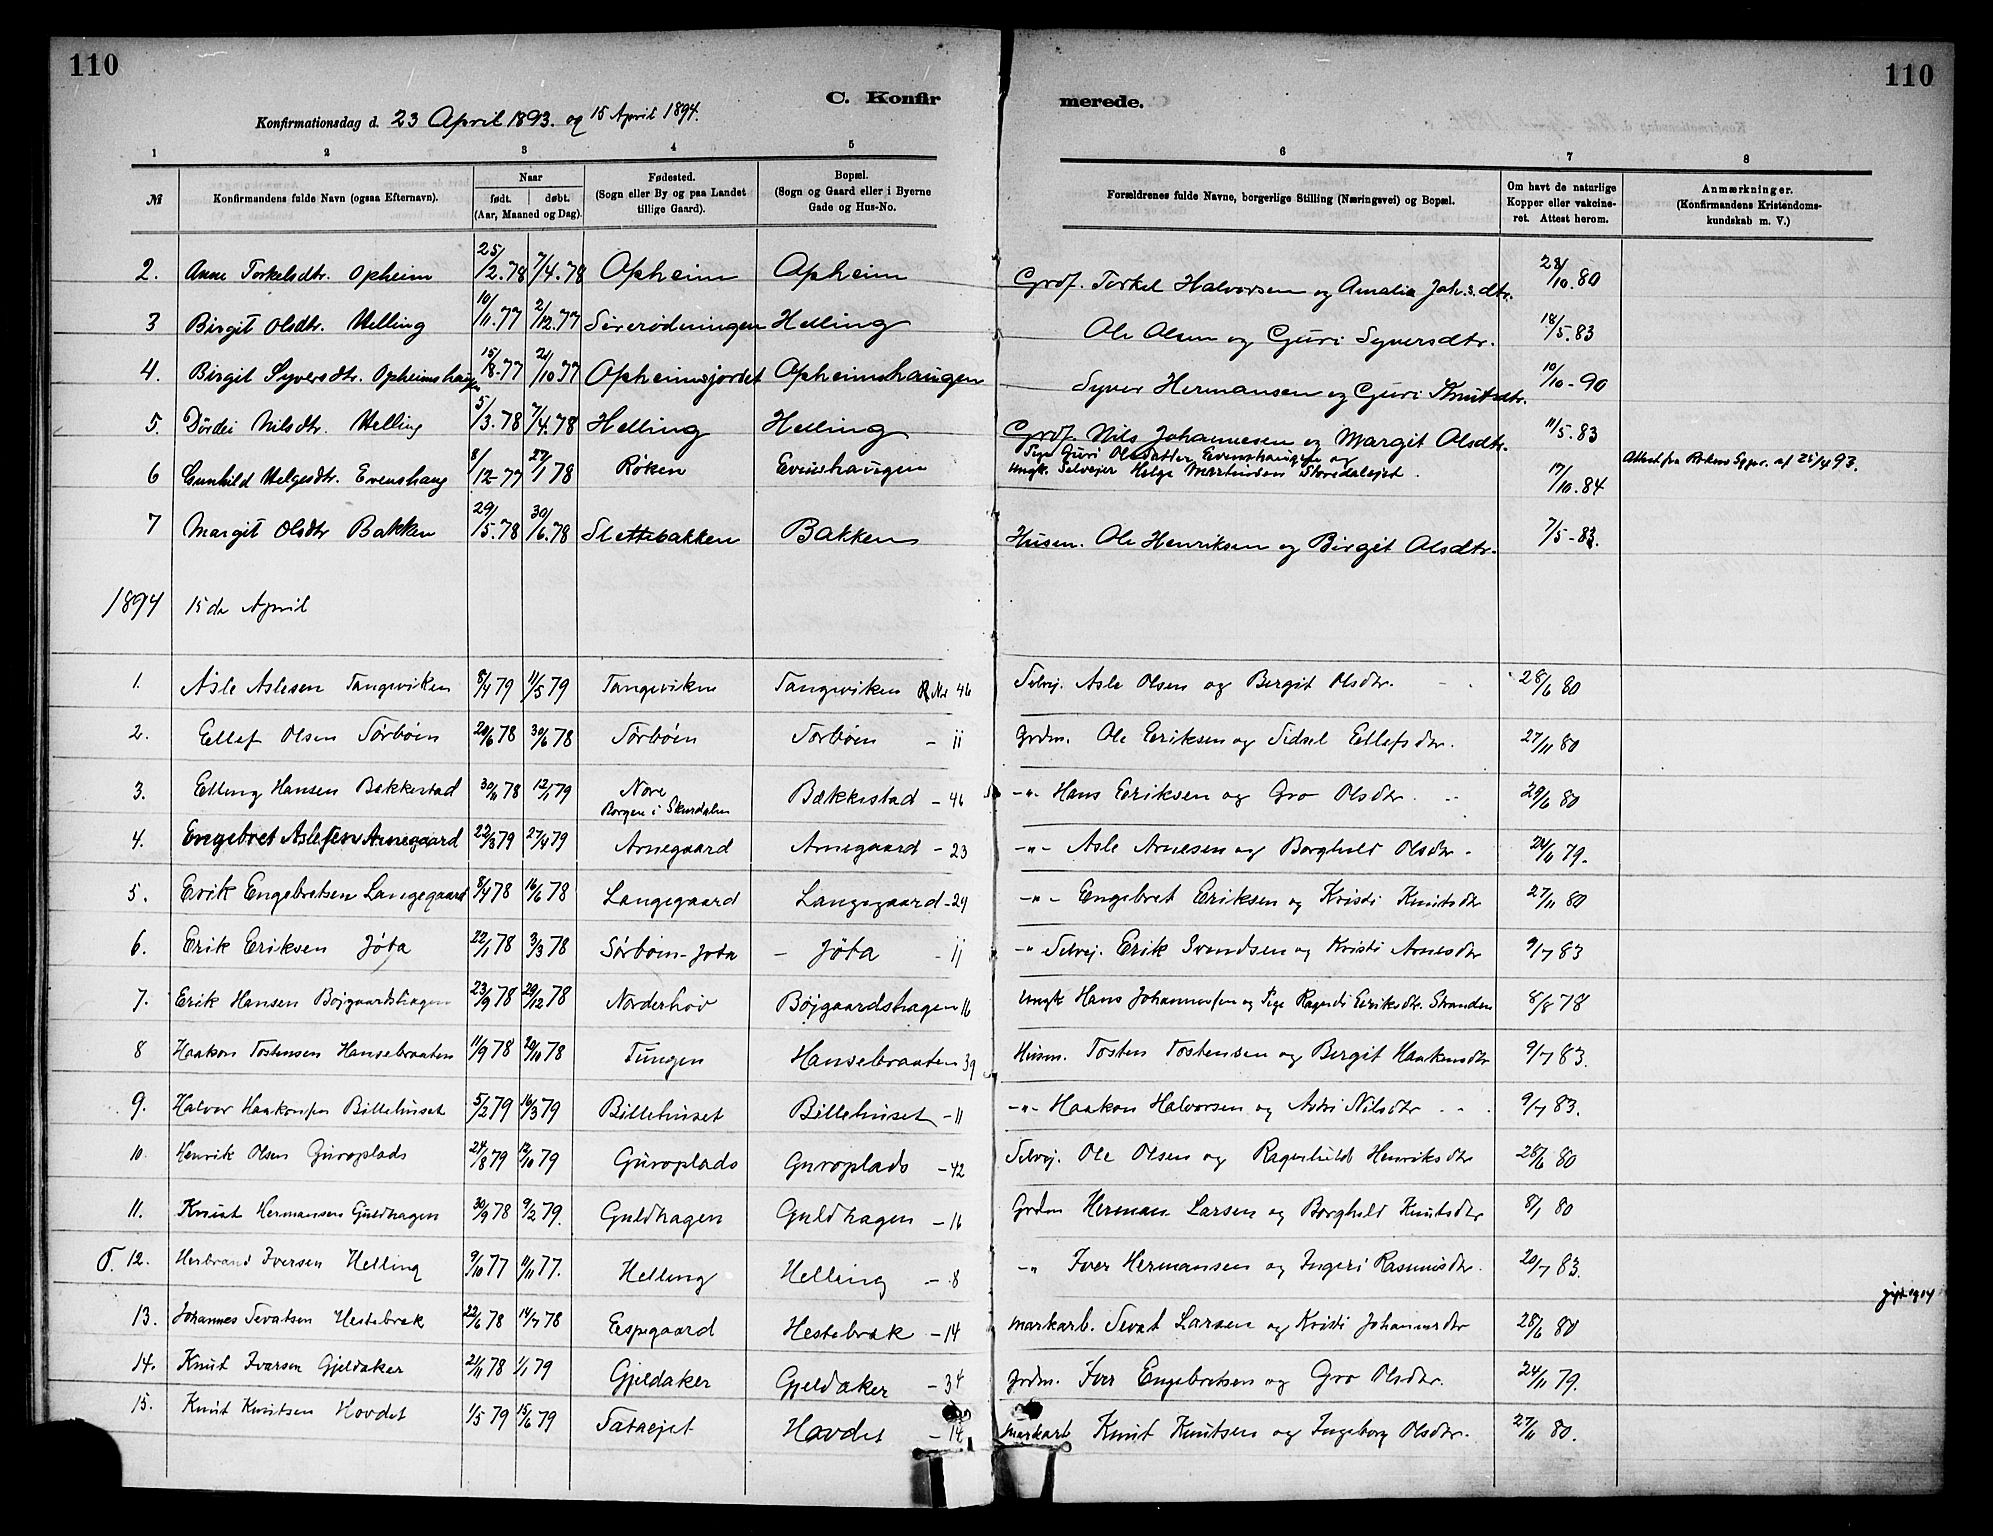 110
110
C. Konfir
merede.
Konfirmationsdag d. 23 April 1893. og 15 April 1894.
1 2 3 4 5 6 7 8
№ Konfirmandens fulde Navn (ogsaa Efternavn). Naar født. døbt. (Aar, Maaned og Dag). Fødested. (Sogn eller By og paa Landet tillige Gaard). Bopæl. (Sogn og Gaard eller i Byerne Gade og Hus-No. Forældrenes fulde Navne, borgerlige Stilling (Næringsvei) og Bopæl. Om havt de naturlige Kopper eller vakcineret. Attest herom. Anmærkninger. (Konfirmandens Kristendomskundskab m. V.)
2. Anne Torkelsdtr. Opheim 25/2.78 7/4.78 Opheim Opheim Grdf. Torkel Halvorsen og Amalia Joh.s.dtr. 28/10.80
3 Birgit Olsdtr. Helling 10/11.77 2/12.77 Helling Ole Olsen og Guri Syversdtr. 18/5.83
4. Birgit Syversdtr. Opheimshaugen 15/8.77 21/10 77 Opheimsjordet Opheimshaugen Syver Hermansen og Guri Knutsdtr. 10/10-90
5. Dordei Nilsdtr. Helling 5/3.78 7/4.78 Helling Helling Grdf. Nils Johannesen og Margit Olsdtr. 11/5.83
6 Gunhild Helgesdtr. Evenshaug 8/12-77 27/1 78 Røken Evenshaugen Pige Guri Olsdatter Evenshaugen og
Ungk. Selvejer Helge Martinsen 17/10.84 Attest fra af 25/4 93.
7 Margit Olsdtr Bakken 29/5.78 30/6.78 Slettebakken Bakken Husm. Ole Henriksen og Birgit Olsdtr. 7/5-83.
1894 15de April
1. Asle Aslesen Tangeviken 8/4 79 11/5 79 Tangeviken Tangeviken R No 46 Selvej. Asle Olsen og Bergit Olsdtr. 28/6 80
2. Ellef Olsen Torbøen 20/6 78 30/6 78 Torbøen Torbøen - 11 Grdm. Ole Eriksen og Sidsel Ellefsdtr. 27/11 80
3. Elling Hansen Bækkestad 30/11 78 12/1 79 Nore
Borgen i Skurdalen Bækkestad - 46 -"- Hans Eriksen og Gro Olsdtr. 29/6 80
4. Engebret Aslesen Arnegaard 22/3 79 27/4 79 Arnegaard Arnegaard - 23 -"- Asle Arnesen og Borghild Olsdtr. 24/11 79.
5. Erik Engebretsen Langegaard 8/4 78 16/6 78 Langegaard Langegaard - 29 -"- Engebret Eriksen og Kristi Knutsdtr 27/11 80
6. Erik Eriksen Jøta 22/1 78 3/3 78 Sørbøen-Jøta - Jøta - 11 -" Selvej. Erik Svendsen og Kristi Arnesdtr 9/7 83
7. Erik Hansen Bøjgaardshagen 23/9 78 29/12 78 Norderhov Bøjgaardshagen 16 Ungk Hans Johannesen og Pige Ragndi Eriksdtr. Stranden 8/8 78
8 Haakon Tostensen Hansebraaten 11/9 78 20/10 78 Tungen Hansebraaten 39 Husm. Tosten Tostensen og Bergit Haakensdtr 9/7 83.
9. Halvor Haakonsen Billehuset 5/2 79 16/3 79 Billehuset Billehuset - 11 -"- Haakon Halvorsen og Nilsdtr 9/7 83.
10. Henrik Olsen Guroplads 24/8 79 12/10 79 Guroplads Guroplads - 42 Selvej. Ole Olsen og Ragnhild Henriksdtr 28/6 80
11. Knut Hermansen Guldhagen 30/9 78 9/2 79. Guldhagen Guldhagen - 16 Grdm Herman Larsen og Borghild Knutsdtr 8/1 80
12. Herbrand Iversen Helling 9/10 77 11/11 77. Helling Helling - 8 -" Iver Hermansen og Ingeri Rasmusdtr. 20/7 83.
13. Johannes Sevatsen Hestebrak 22/6 78 14/7 78 Espegaard Hestebrak - 14 markarb. Sevat Larsen og Kristi Johannesdtr 28/6 80 gift 1914
14. Knut Iversen Gjeldaker 21/11 78 1/1 79 Gjeldaker Gjeldaker - 34 Grdm. Iver Engebretsen og Gro Olsdtr. 24/11 79.
15. Knut Knutsen Hovdet 1/5 79 15/6 79 Hovdet - 14 markarb Knut Knutsen og Ingeborg Olsdtr. 27/11 80.